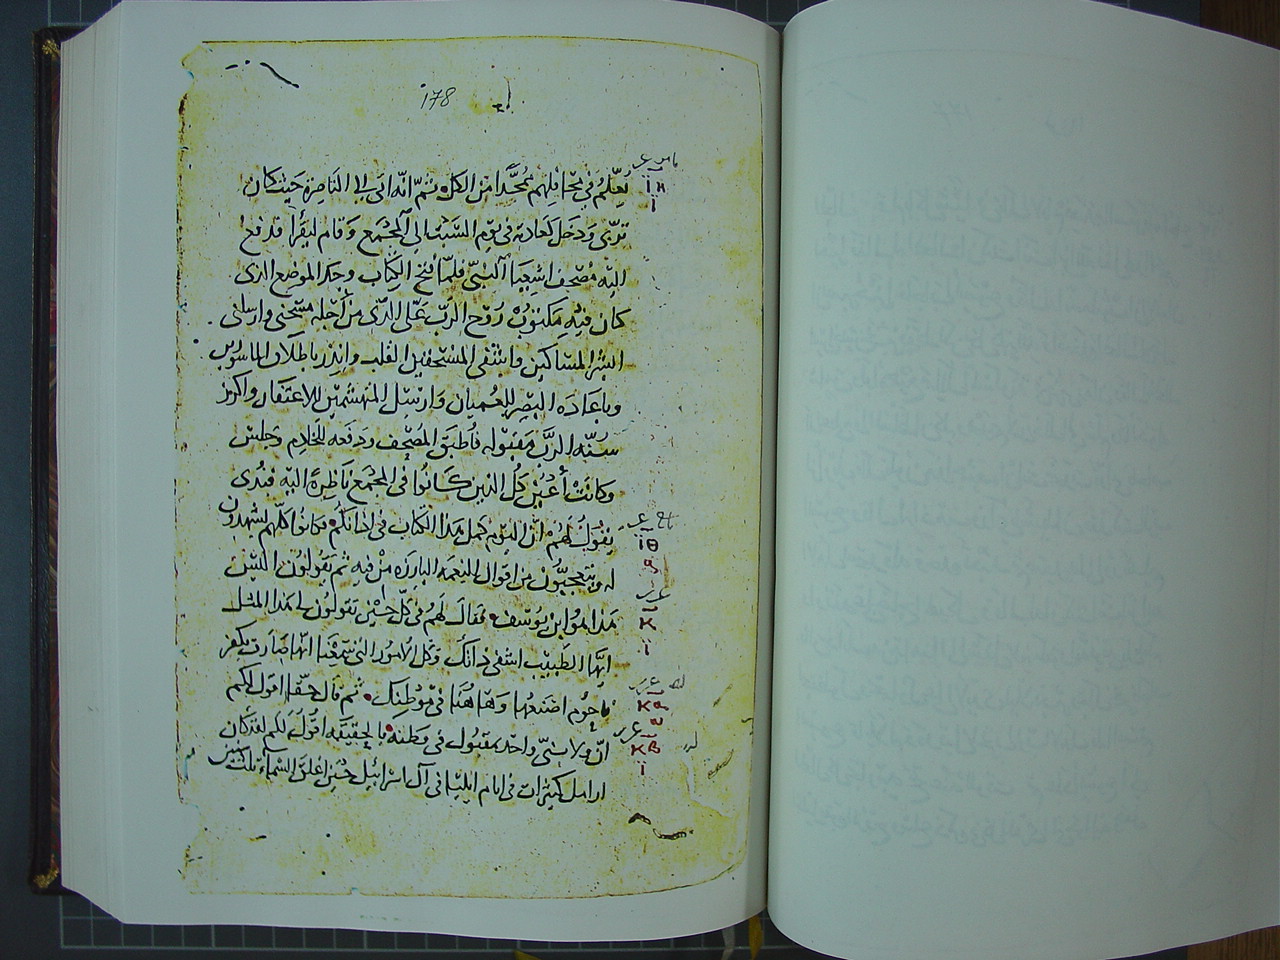 178
يُعلّم في محافلهم مُمجَّدا من الكل ثمّ انّه اتى الى الناصرة حيث كان
تربّى ودخل كعادته في يوم السّبت الى المجمع وقام ليقرأ فدفع
اليه مصحف اشعيا النبيّ فلمّا فتح الكتاب وجد الموضع الذى
كان فيه مكتوبٌ روح الربّ عَلَى الذى من أجله مسحنى وارسلنى
ابشر المساكين واشفى المنسحقين القلب وانذر باطلاق الماسورين
وباعاده البصر للعميان وارسل المنهشمين للاعتقاق واكرز
سنه الربّ مقبوله فأطبق المصحف ودفعه للخادم وجلس
وكانت أعين كل الذين كانوا في المجمع ناظرة اليه فبدى
يقول لهم انّ اليوم كمل هذا الكتاب فى اذانكم فكانوا كلهم يشهدون
له ويتعجبون من اقوال النعمه البارزه من فيه ثم يقولون اليس
هذا هو ابن يوسف فقال لهم في كلّ حين تقولون لى هذا المثل
ايّها الطبيب اشفى ذاتك وكل الامور التى سمعنا انها صارت بكفر
ناحوم اصنعها وهاهنا في موطنك ثم قال حقا اقول لكم
انّ ولا نبيّ واحد مقبول فى وطنه بالحقيقه اقول لكم لقد كان
ارامل كثيرات فى ايام ايليا فى آل اسرائيل حين اغلق السماء ثلث سنين